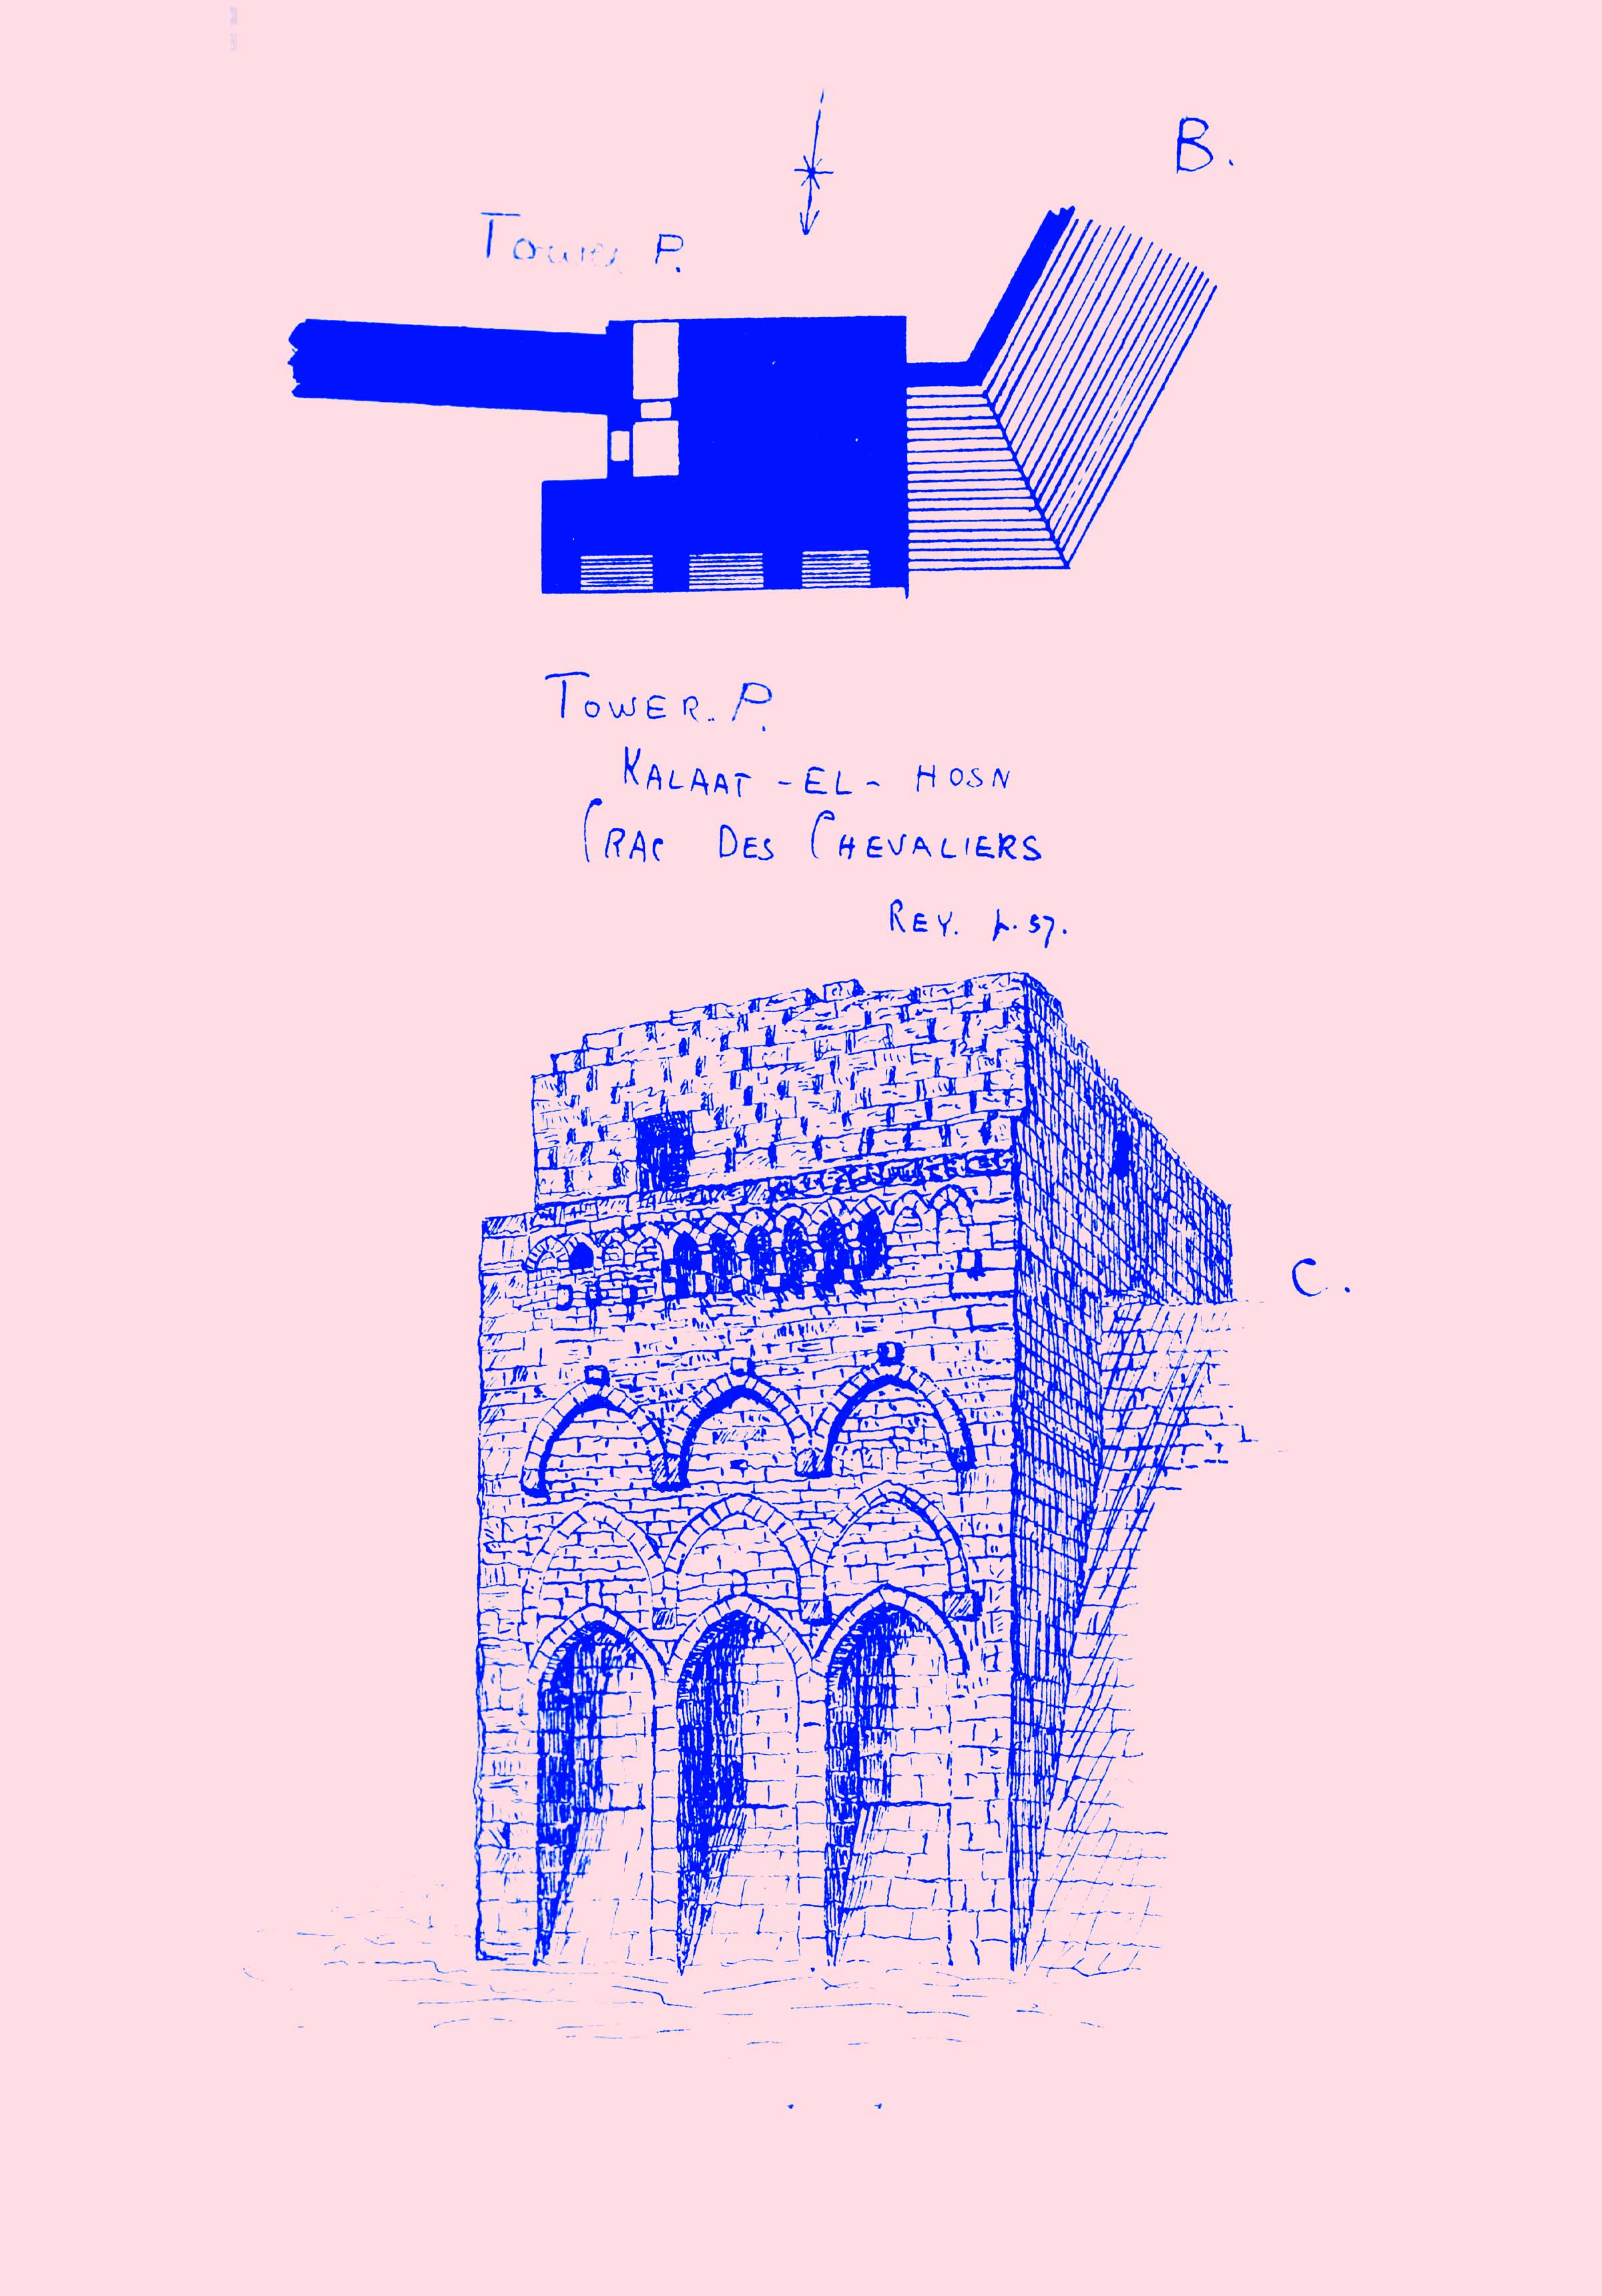 B.
Tower P.
TOWER. P.
KALAAT - EL - HOSN
CRAC DES CHEVALIERS
REY. p. 57.
C.